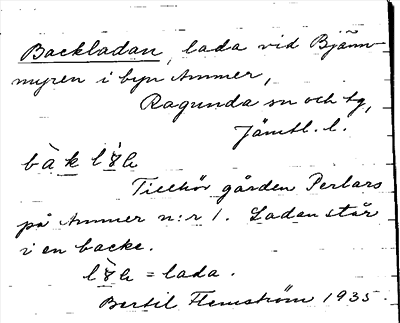 Backladan, lada vid Bjänn-
myren i byn Ammer,
Ragunda sn och tg,
Jämtl. l.
bàk
Tillhör gården Perlars
på Ammer n:r 1. Ladan står
i en backe.
= lada.
Bertil Flemström 1935.